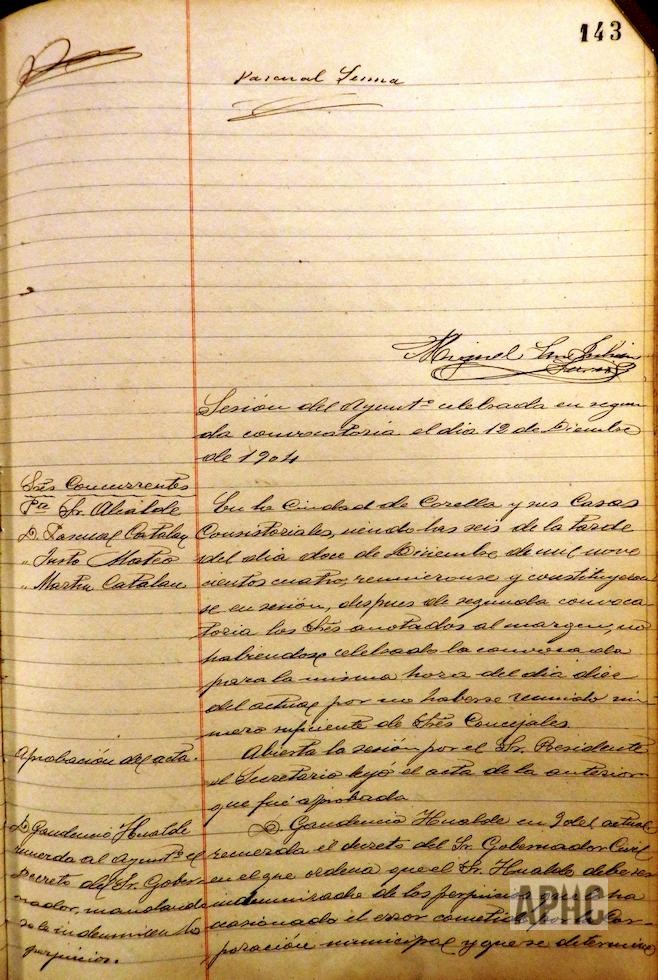 143
Pascual Sesma
Miguel San Julian
Sesión del Ayuntº celebrada en segun
da convocatoria el dia 12 de Diciembre
de 1904
Sres Concurrentes
Pte Sr. Alcalde
D. Pascual Catalan
" Justo Mateo
" Martin Catalan
En la Ciudad de Corella y sus Casas
Consistoriales, siendo las seis de la tarde
del dia doce de Diciembre de mil nove
cientos cuatro, reunieronse y constituyeron
se en sesión, despues de segunda convoca
toria los Sres anotados al margen, no
habiendose celebrado la convocada
para la misma hora del dia diez
del actual por no haberse reunido nú
mero suficiente de Sres Concejales.
Aprobación del acta.
Abierta la sesión por el Sr. Presidente
el Secretario leyó el acta de la anterior
que fué aprobada
D. Gaudencio Hualde
recuerda al Ayuntº el
decreto del Sr. Gober
nador, mandando
se le indemnicen los
perjuicios.
D. Gaudencio Hualde en 9 del actual
recuerda el decreto del Sr. Gobernador Civil
en el que ordena que el Sr. Hualde debe ser
indemnizado de los perjuicios que le ha
ocasionado el error cometido por la Cor
poración municipal y que se determine
APHC